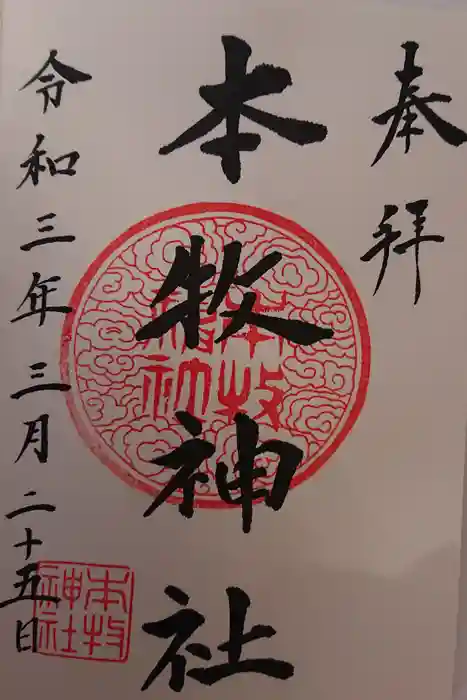 奉拝
本牧神社
令和三年三月二十五日
本牧
神社